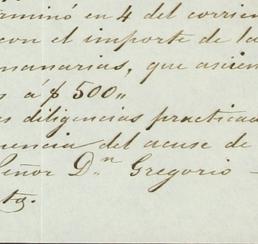 rminó en 4 del corrien
con el importe de la
manarias, que ascien
s á $ 500,,
s diligencias practicad
uencia del acuse de
Señor Dn Gregorio
ta.